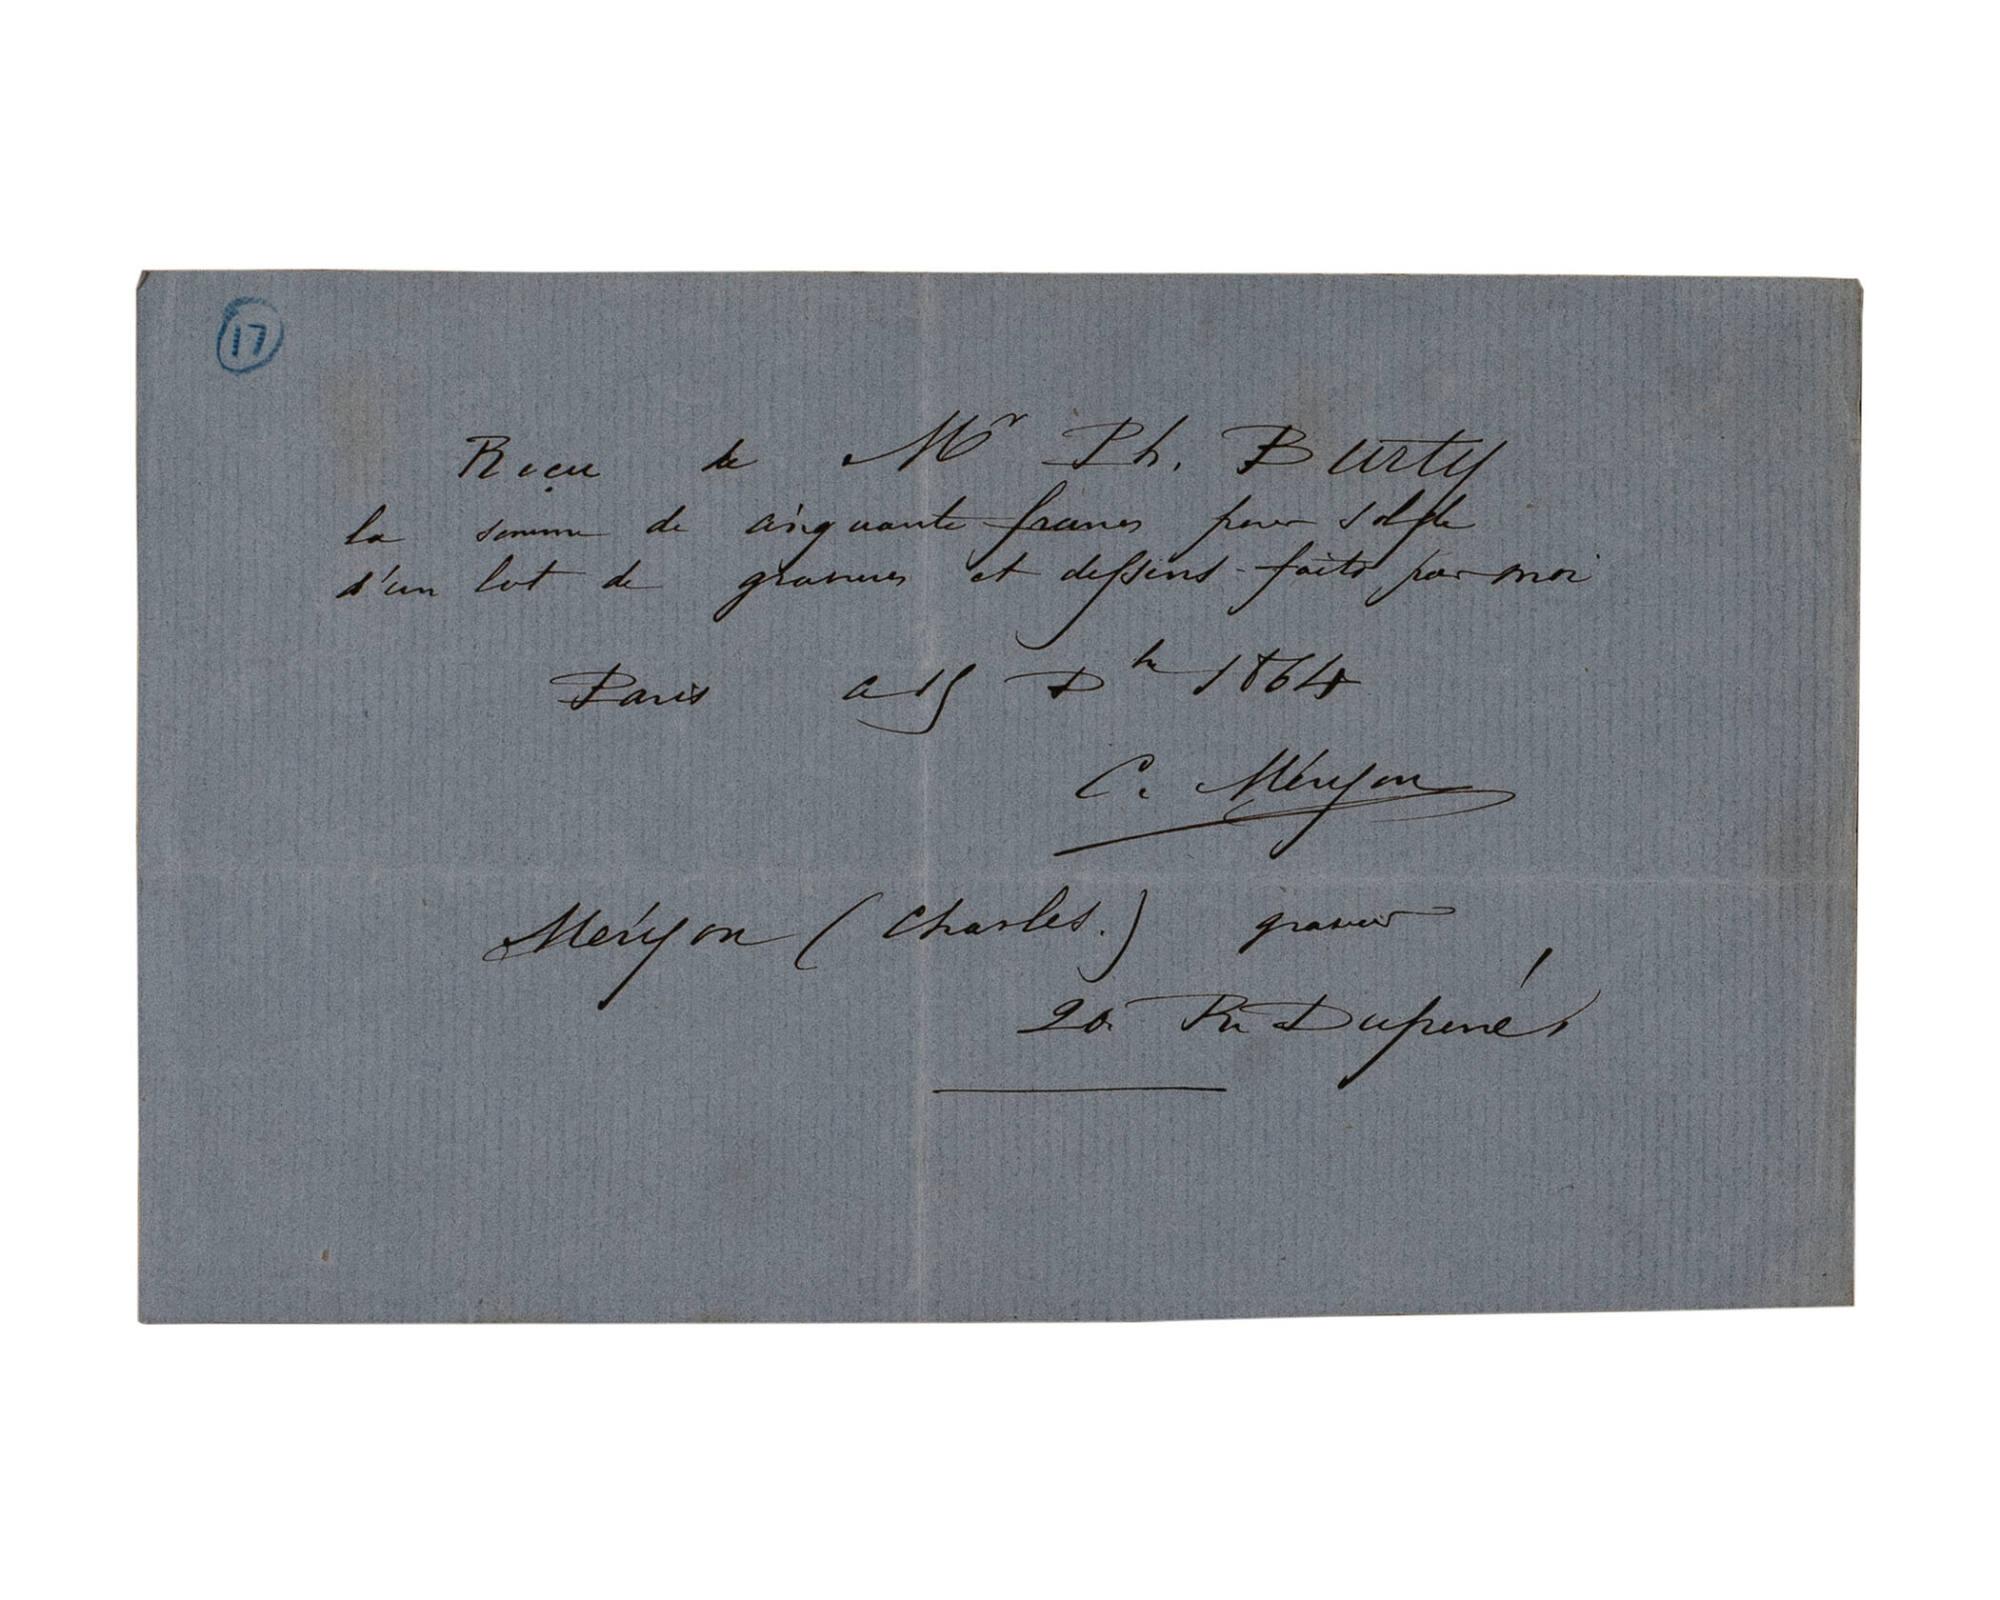 17
Reçu de Mr Ph. Burty
la somme de cinquante francs pour solde
d'un lot de gravures et dessins faits par moi
Paris ce 15 Dbre 1864
C. Méryon
Méryon (Charles.) graveur
20 Rue Duperré